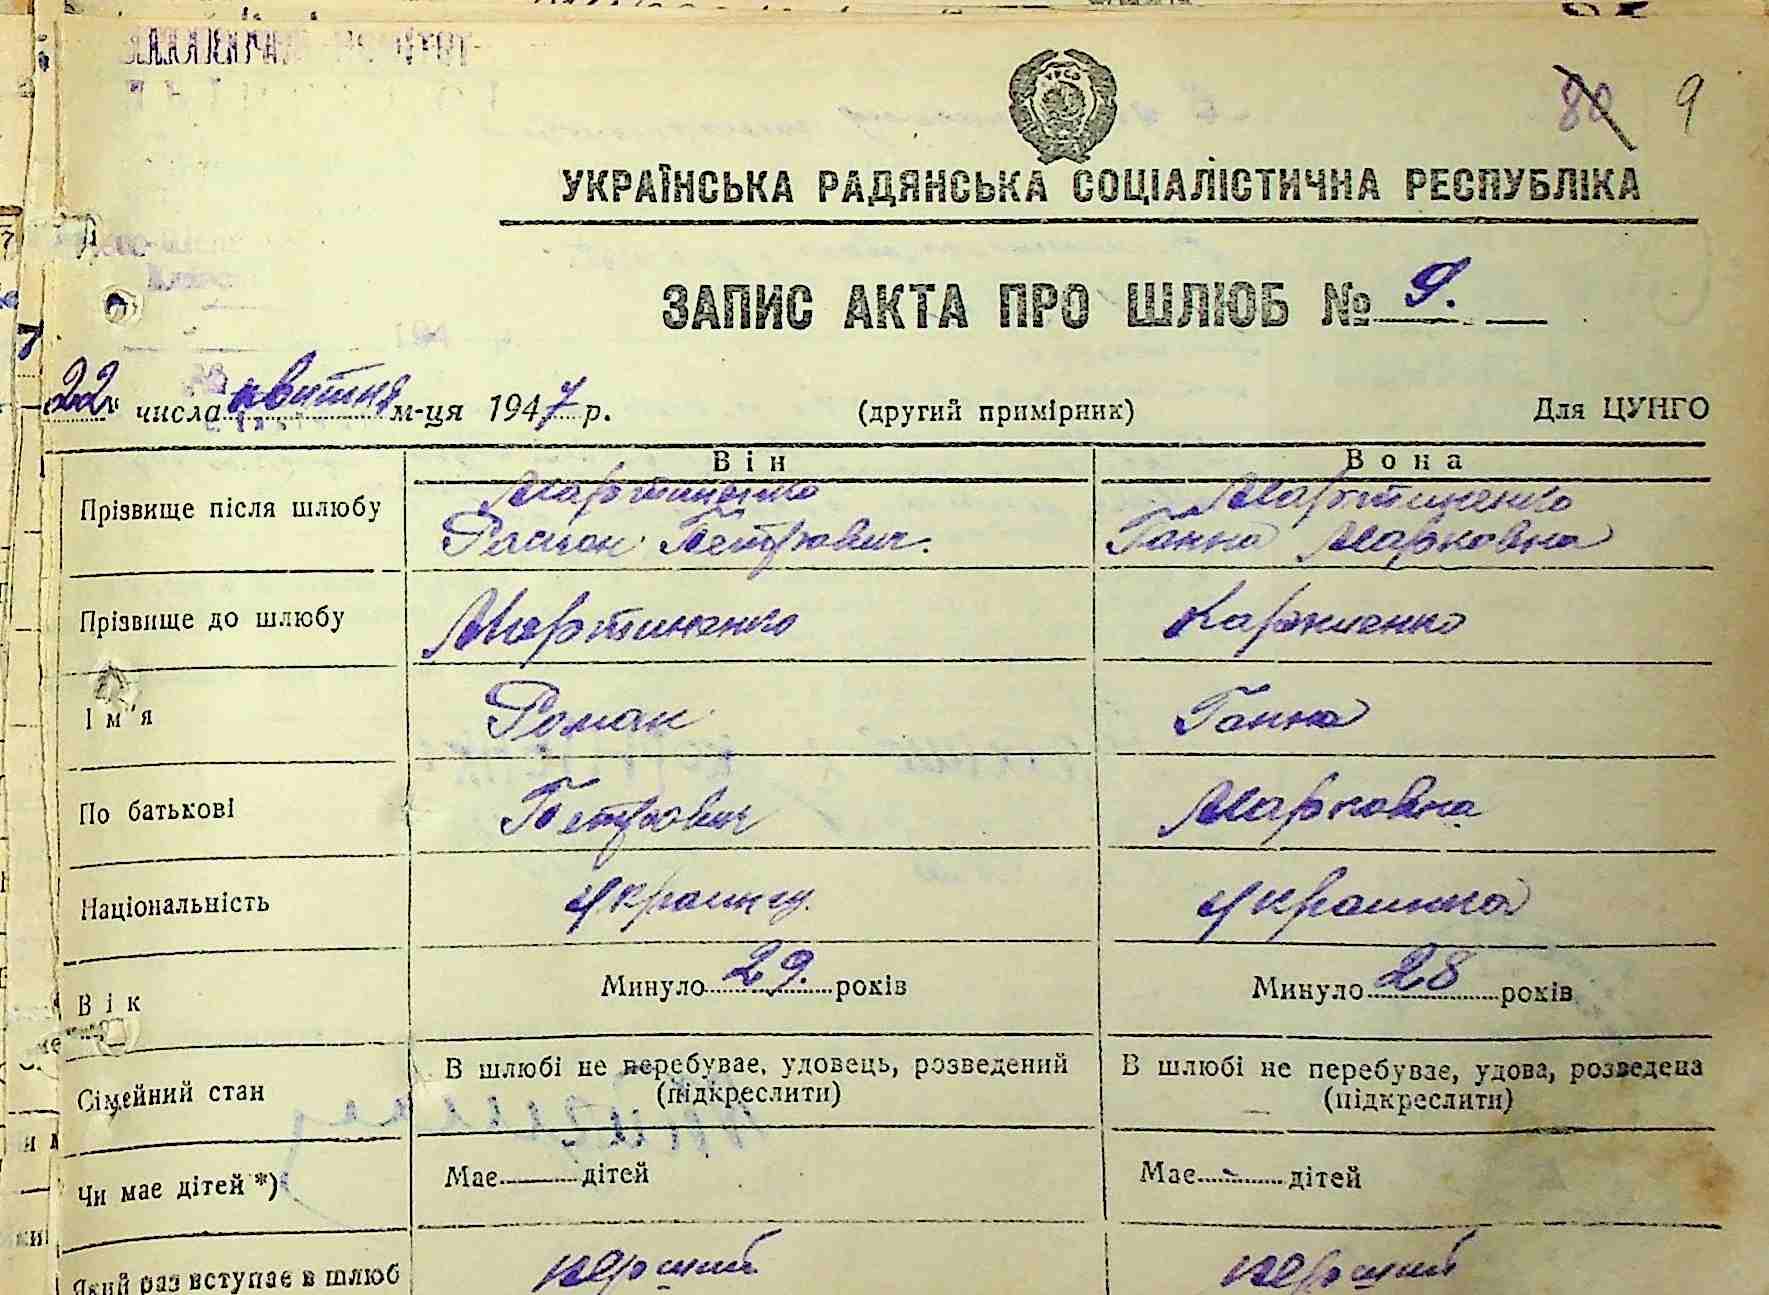 80 9
УКРАЇНСЬКА РАДЯНСЬКА СОЦІАЛІСТИЧНА РЕСПУБЛІКА
ЗАПИС АКТА ПРО ШЛЮБ № 9.
22 числа квітня м-ця 1947 р. (другий примірник) Для ЦУНГО
Він Вона
Прізвище після шлюбу Мартиненко Роман Петрович. Мартиненко Ганна Марковна
Прізвище до шлюбу Мартиненко
Ім'я Роман Ганна
По батькові Петрович Марковна
Національність Украинец Украинка
Вік Минуло 29. років Минуло 28 років
Сімейний стан В шлюбі не перебуває, удовець, розведений (підкреслити) В шлюбі не перебуває, удова, розведена (підкреслити)
Чи має дітей *) Має дітей Має дітей
Який раз вступає в шлюб перший перший